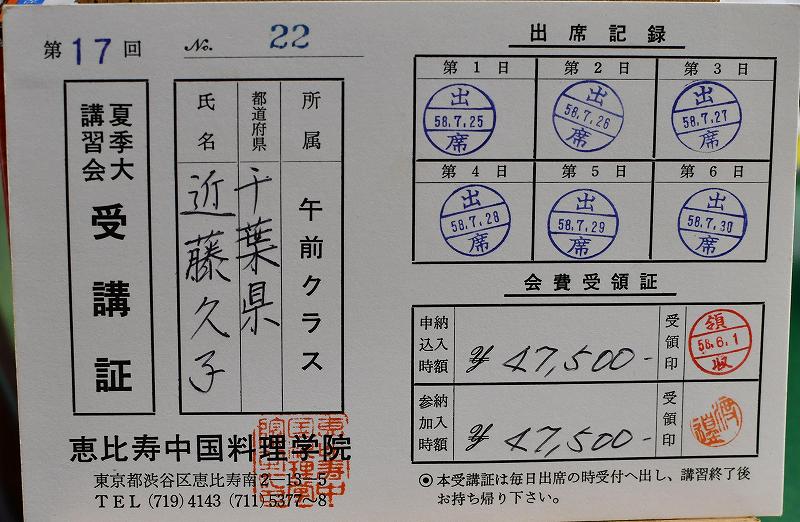 第17回
No. 22
夏季大講習会 受講証
氏名 近藤久子
都道府県 千葉県
所属 午前クラス
恵比寿中国料理学院
東京都渋谷区恵比寿南2-13-5
TEL (719) 4143 (711) 5377〜8
出席記録
第1日 第2日 第3日
出 58.7.25 席
出 58.7.26 席
出 58.7.27 席
第4日 第5日 第6日
出 58.7.28 席
出 58.7.29 席
出 58.7.30 席
会費受領証
申込時 納入額 ¥47,500- 受領印
領 58.6.1 収
参加時 納入額 ¥47,500- 受領印
◉本受講証は毎日出席の時受付へ出し、講習終了後
お持ち帰り下さい。